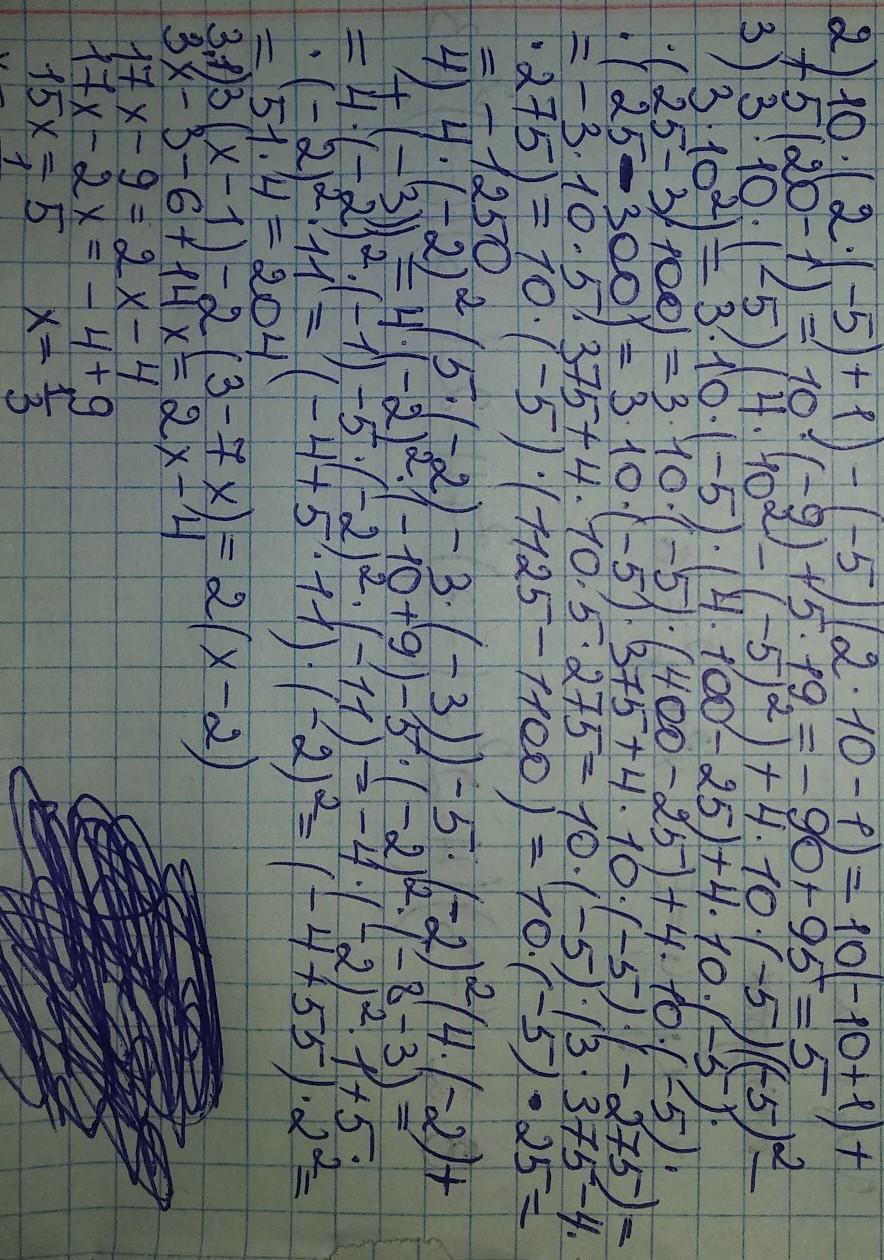 2) 10·(2·(-5)+1)-(-5)(2·10-1)=10(-10+1)+
+5(20-1)=10·(-9)+5·19=-90+95=5
3) 3·10·(-5)(4·10²-(-5)²)+4·10·(-5)((-5)²-
3·10²)=3·10·(-5)·(4·100-25)+4·10·(-5)·
·(25-3·100)=3·10·(-5)·(400-25)+4·10·(-5)·
·(25-300)=3·10·(-5)·375+4·10·(-5)·(-275)=
=-3·10·5·375+4·10·5·275=10·(-5)·(3·375-4·
·275)=10·(-5)·(1125-1100)=10·(-5)·25=
=-1250
4) 4·(-2)²(5·(-2)-3·(-3))-5·(-2)²(4·(-2)+
+(-3))=4·(-2)²·(-10+9)-5·(-2)²·(-8-3)=
=4·(-2)²·(-1)-5·(-2)²·(-11)=-4·(-2)²·1+5·
·(-2)²·11=(-4+5·11)·(-2)²=(-4+55)·2²=
=51·4=204
3(x-1)-2(3-7x)=2(x-2)
3x-3-6+14x=2x-4
17x-9=2x-4
17x-2x=-4+9
15x=5 x=1/3